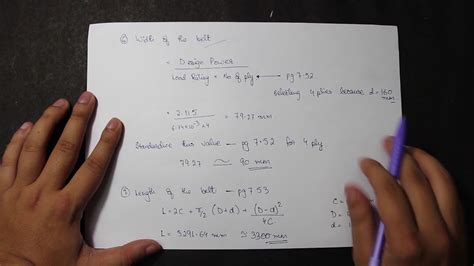 ⑥ Width of the belt
= Design Power
Load Rating × No of ply ← pg 7.52
Selecting 4 plies because d = 160 mm
= 2.115
× 4 = 79.27 mm
Standardize this value – pg 7.52 for 4 ply
79.27 ≃ 90 mm
⑦ Length of the belt – pg 7.53
L = 2C + π/2 (D+d) + (D-d)²
4C
L = 3291.64 mm ≃ 3300 mm
C =
D =
d =